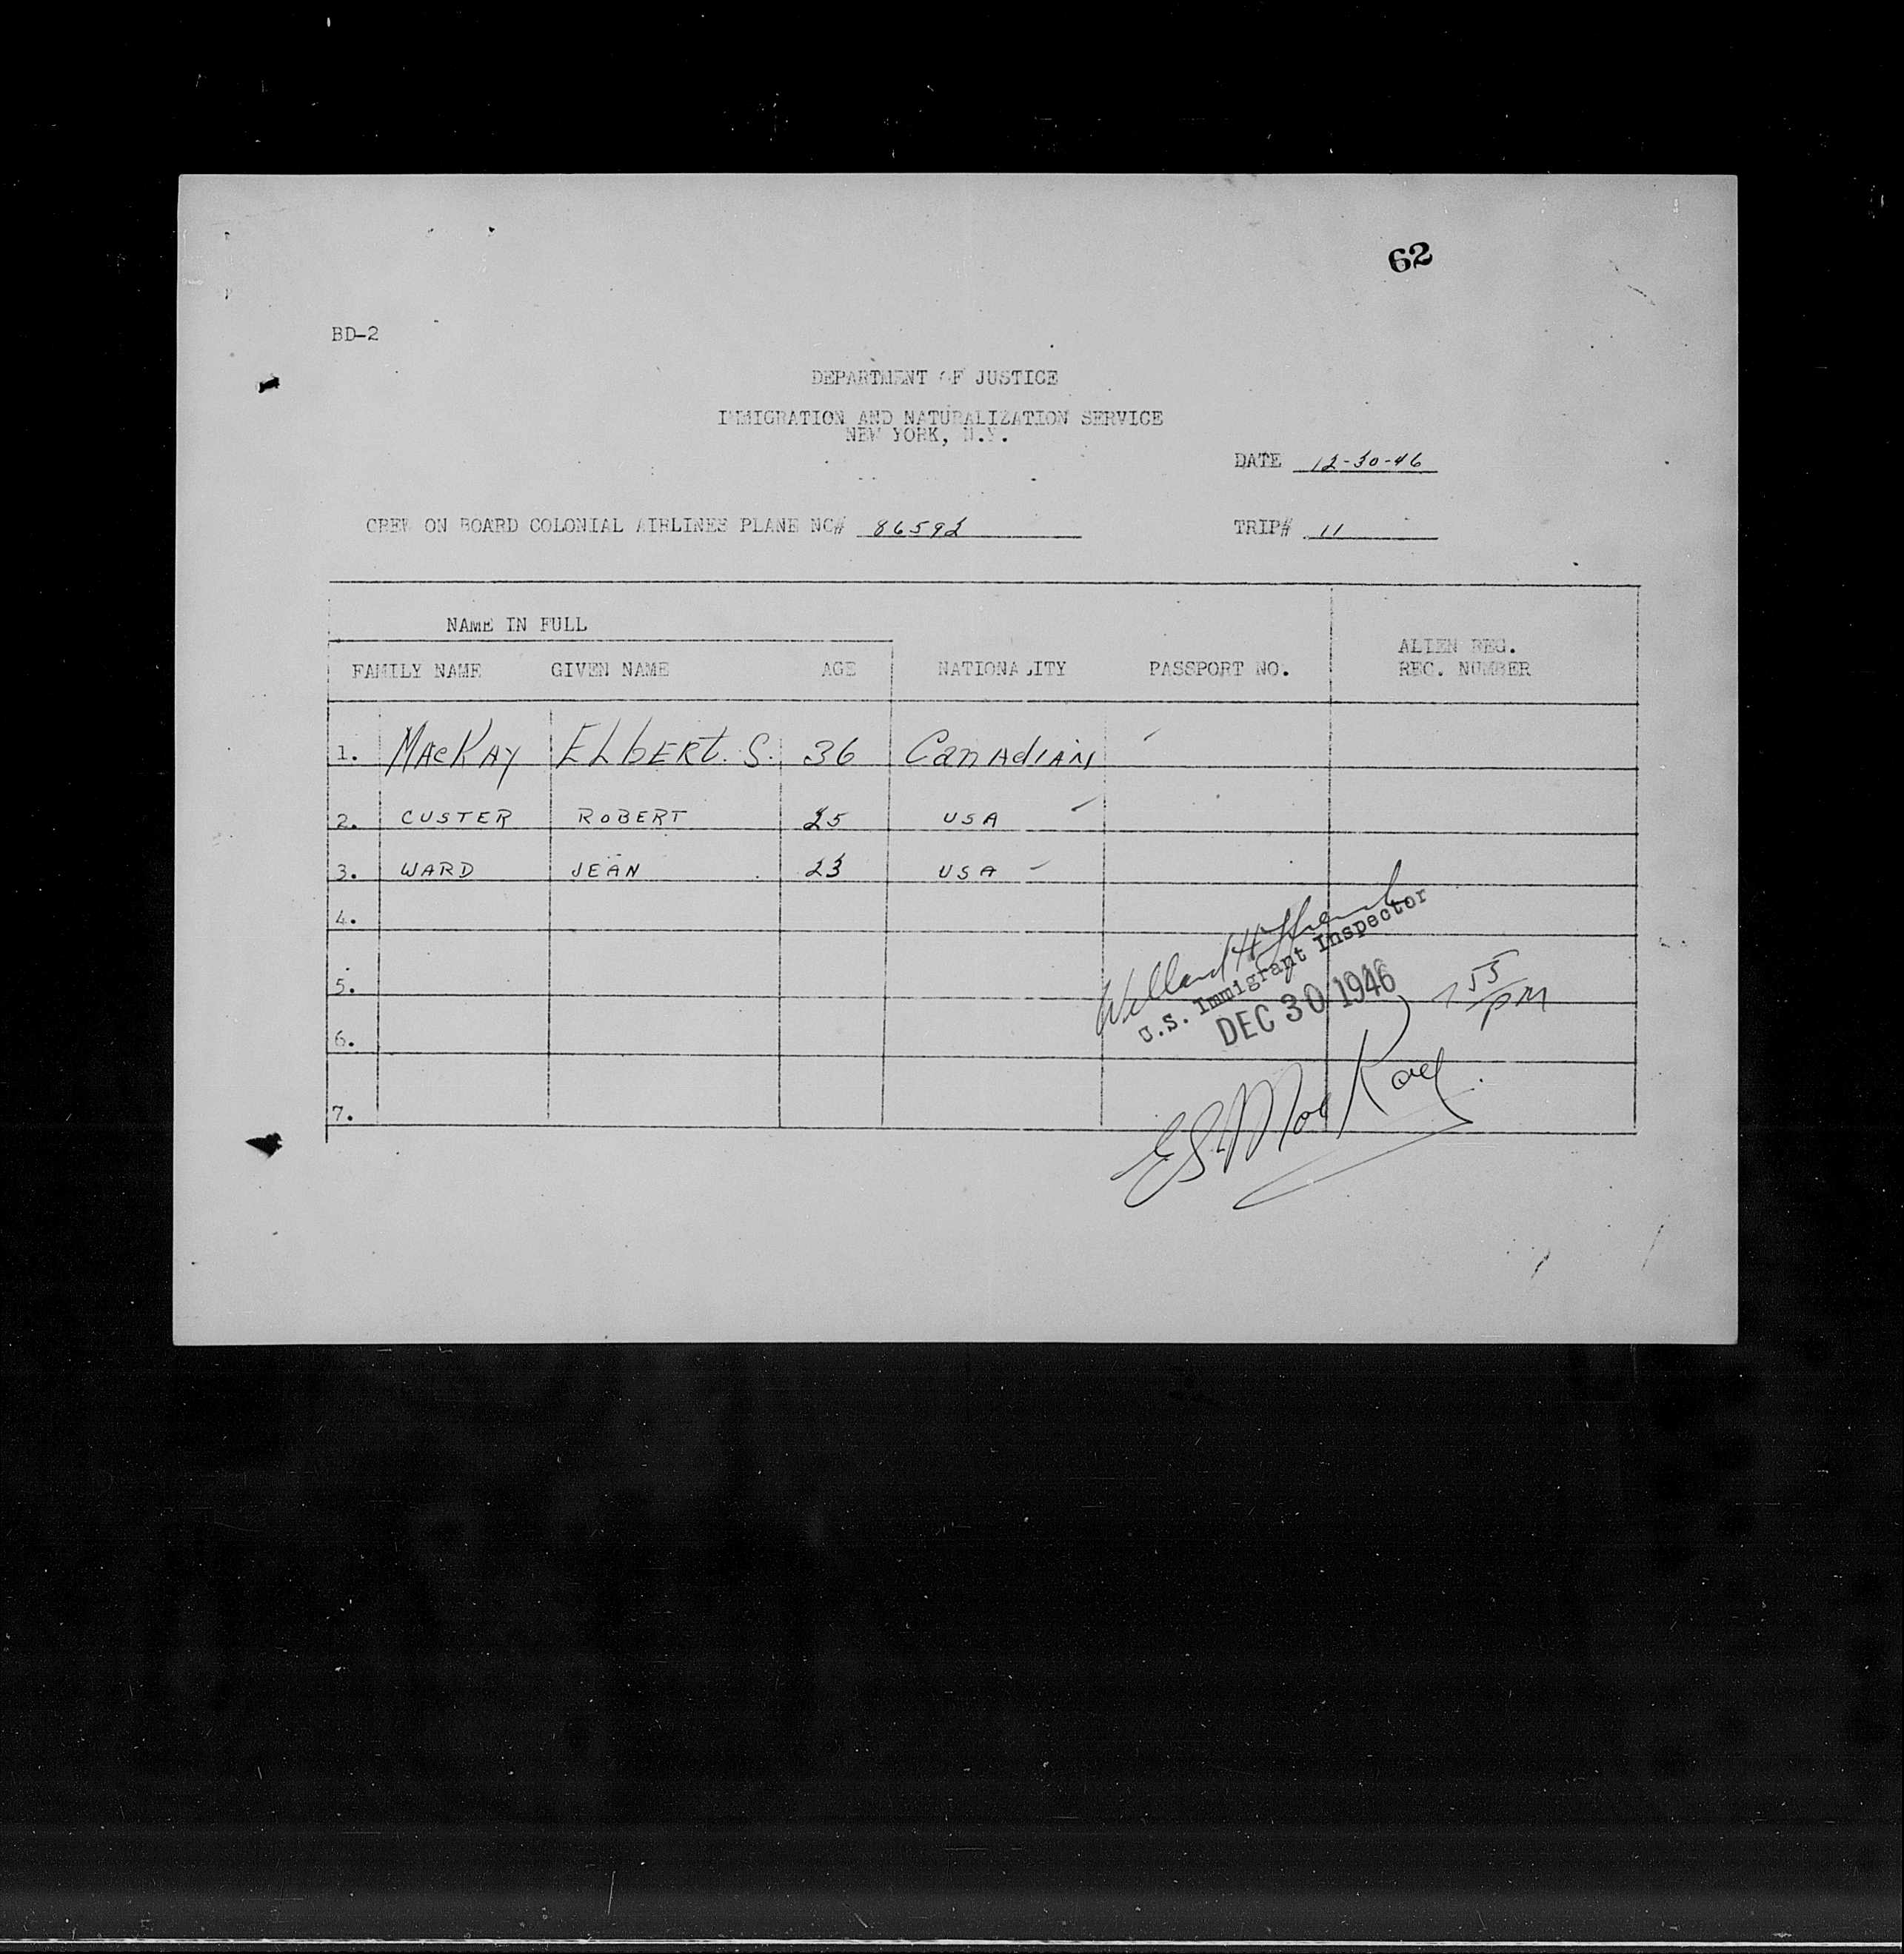 62
BD-2
DEPARTMENT OF JUSTICE
IMMIGRATION AND NATURALIZATION SERVICE
NEW YORK, N.Y.
DATE 12-30-46
CREW ON BOARD COLONIAL AIRLINES PLANE NC# 86592 TRIP# 11
NAME IN FULL
FAMILY NAME GIVEN NAME AGE NATIONALITY PASSPORT NO. ALIEN REG. REC. NUMBER
1. MacKAY ELbERt. S. 36 CanAdiAN
2. CUSTER ROBERT 25 USA
3. WARD JEAN 23 USA
4.
5.
6.
7.
Willard H
U.S. Immigrant Inspector
DEC 30 1946
7 55 PM
E S MacKay